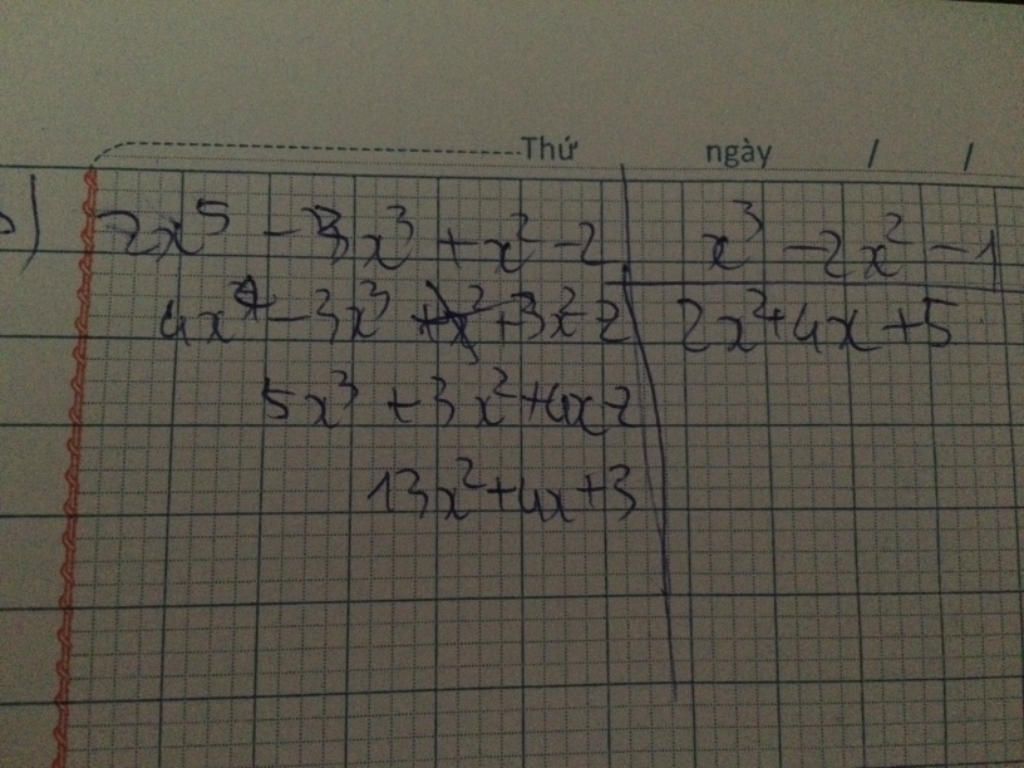 Thứ ngày / /
b) 2x⁵ - 3x³ + x² - 2 | x³ - 2x² - 1
4x⁴ - 3x³ + 3x² - 2 | 2x² + 4x + 5
5x³ + 3x² + 4x - 2
13x² + 4x + 3